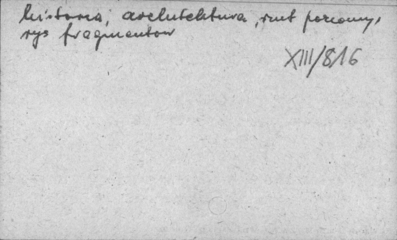 historia, architektura, rzut poziomy,
rys fragmentów
XIII/816